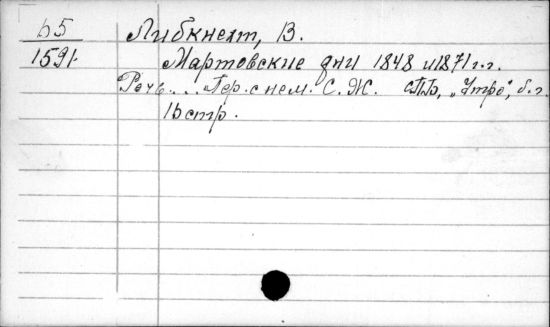 65
Либкнехт, В.
1591
Мартовские дни 1848 и 1871 г.г.
Речь... Пер. с нем. С. Ж. СПБ, "Утро", б. г.
16 стр.